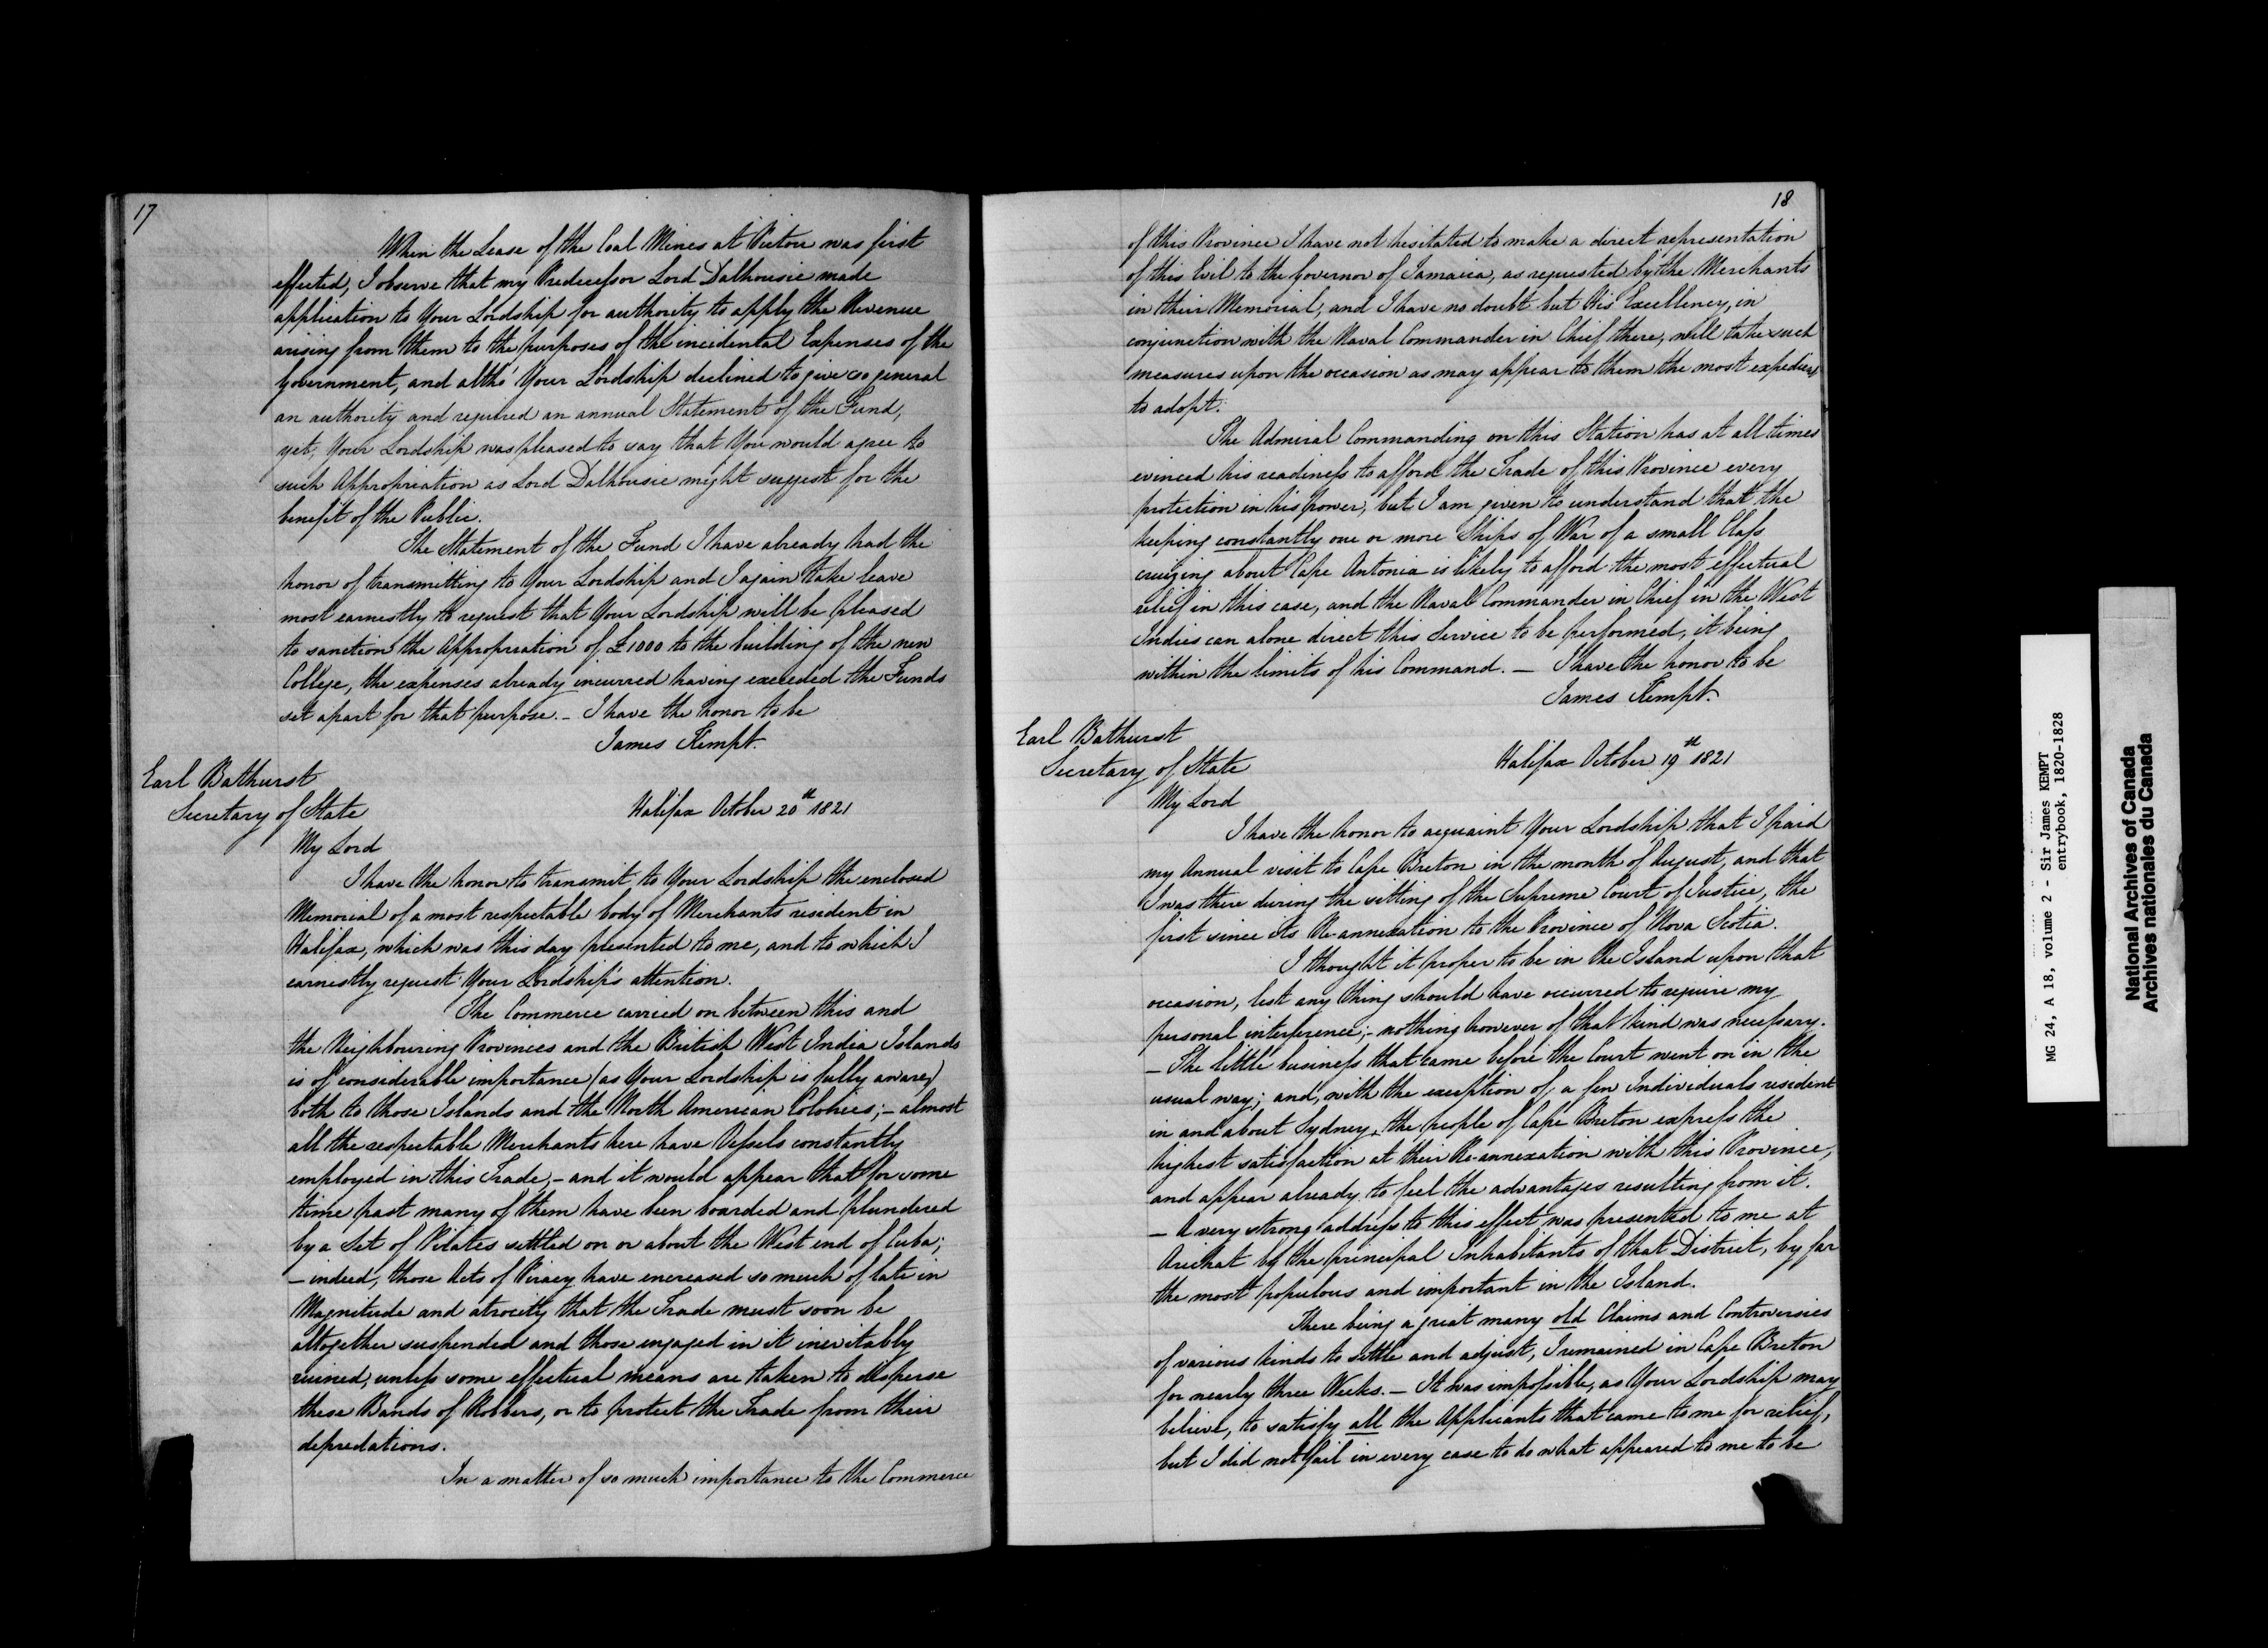 17
When the Lease of the Coal Mines at Pictou was first
effected, I observe that my Predecessor Lord Dalhousie made
application to Your Lordship for authority to apply the Revenue
arising from them to the purposes of the incidental Expenses of the
Government, and altho' Your Lordship declined to give so general
an authority and required an annual Statement of the Fund,
yet, Your Lordship was pleased to say that You would agree to
such Appropriation as Lord Dalhousie might suggest for the
benefit of the Public.
The Statement of the Fund I have already had the
honor of transmitting to Your Lordship and I again take leave
most earnestly to request that Your Lordship will be pleased
to sanction the Appropriation of £1000 to the building of the new
College, the expenses already incurred having exceeded the Funds
set apart for that purpose. – I have the honor to be
James Kempt.
Earl Bathurst
Secretary of State
Halifax October 20th 1821
My Lord
I have the honor to transmit to Your Lordship the enclosed
Memorial of a most respectable body of Merchants resident in
Halifax, which was this day presented to me, and to which I
earnestly request Your Lordship's attention.
The Commerce carried on between this and
the Neighbouring Provinces and the British West India Islands
is of considerable importance (as Your Lordship is fully aware)
both to those Islands and the North American Colonies; – almost
all the respectable Merchants here have Vessels constantly
employed in this Trade, – and it would appear that for some
time past many of them have been boarded and plundered
by a Set of Pirates settled on or about the West end of Cuba;
– indeed, those Acts of Piracy have encreased so much of late in
Magnitude and atrocity that the Trade must soon be
altogether suspended and those engaged in it inevitably
ruined, unless some effectual means are taken to disperse
these Bands of Robbers, or to protect the Trade from their
depredations.
In a matter of so much importance to the Commerce
18
of this Province I have not hesitated to make a direct representation
of this Evil to the Governor of Jamaica, as requested by the Merchants
in their Memorial, and I have no doubt but His Excellency, in
conjunction with the Naval Commander in Chief there, will take such
measures upon the occasion as may appear to them the most expedient
to adopt.
The Admiral Commanding on this Station has at all times
evinced his readiness to afford the Trade of this Province every
protection in his power, but I am given to understand that the
keeping constantly one or more Ships of War of a small Class
cruizing about Cape Antonia is likely to afford the most effectual
relief in this case, and the Naval Commander in Chief in the West
Indies can alone direct this Service to be performed, it being
within the limits of his Command. – I have the honor to be
James Kempt.
Earl Bathurst
Secretary of State
Halifax October 19th 1821
My Lord
I have the honor to acquaint Your Lordship that I paid
my Annual visit to Cape Breton in the month of August, and that
I was there during the sitting of the Supreme Court of Justice, the
first since its Re-annexation to the Province of Nova Scotia.
I thought it proper to be in the Island upon that
occasion, lest any thing should have occurred to require my
personal interference; – nothing however of that kind was necessary.
– The little business that came before the Court went on in the
usual way; and, with the exception of a few Individuals resident
in and about Sydney, the people of Cape Breton express the
highest satisfaction at their Re-annexation with this Province,
and appear already to feel the advantages resulting from it.
– A very strong address to this effect was presented to me at
Arichat by the principal Inhabitants of that District, by far
the most populous and important in the Island.
There being a great many old Claims and Controversies
of various kinds to settle and adjust, I remained in Cape Breton
for nearly three Weeks. – It was impossible, as Your Lordship may
believe, to satisfy all the Applicants that came to me for relief,
but I did not fail in every case to do what appeared to me to be
MG 24, A 18, volume 2 - Sir James KEMPT
entrybook, 1820-1828
National Archives of Canada
Archives nationales du Canada